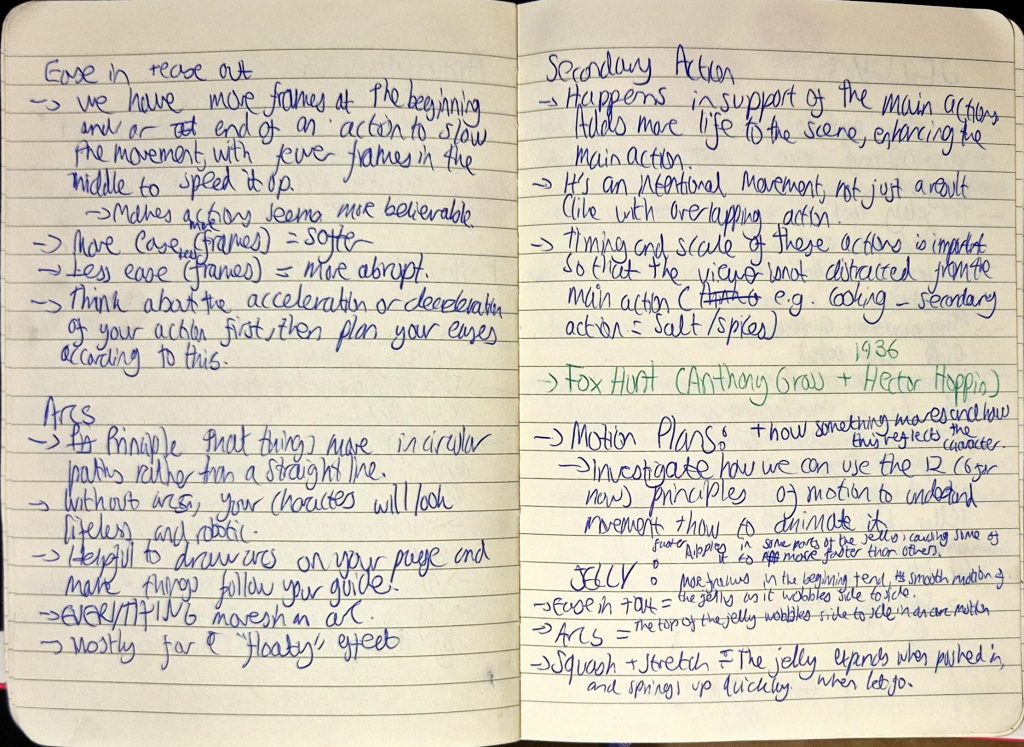 Ease in + ease out
-> We have more frames at the beginning
and or end of an action to slow
the movement, with fewer frames in the
middle to speed it up.
-> Makes actions seem more believable
-> More ease (more frames) = softer
-> Less ease (less frames) = more abrupt.
-> Think about the acceleration or deceleration
of your action first, then plan your eases
according to this.
Arcs
-> Principle that things move in circular
paths rather than a straight line.
-> Without arcs, your charactes will look
lifeless and robotic.
-> Helpful to draw arcs on your page and
make things follow your guide.
-> EVERYTHING moves in arc.
-> Mostly for a "floaty" effect
Secondary Action
-> Happens in support of the main action,
Adds more life to the scene, enhancing the
main action.
-> It's an intentional movement, not just a result
like with overlapping action.
-> Timing and scale of these actions is importat
so that the viewer is not distracted from the
main action ( e.g. cooking - secondary
action = salt/spices)
1936
-> Fox Hunt (Anthony Gross + Hector Hoppin)
-> Motion Plans: + how something moves and how
this reflects the character
-> Investigate how we can use the 12 (6 for
now) principles of motion to understand
movement + how to animate it.
faster ripples in some parts of the jelly, causing some of
it to move faster than others.
JELLY:
-> Ease in + out = More frames in the beginning + end, smooth motion of
the jelly as it wobbles side to side.
-> Arcs = The top of the jelly wobbles side to side in an arc motion
-> Squash + stretch = The jelly expands when pushed in,
and springs up quickly when let go.